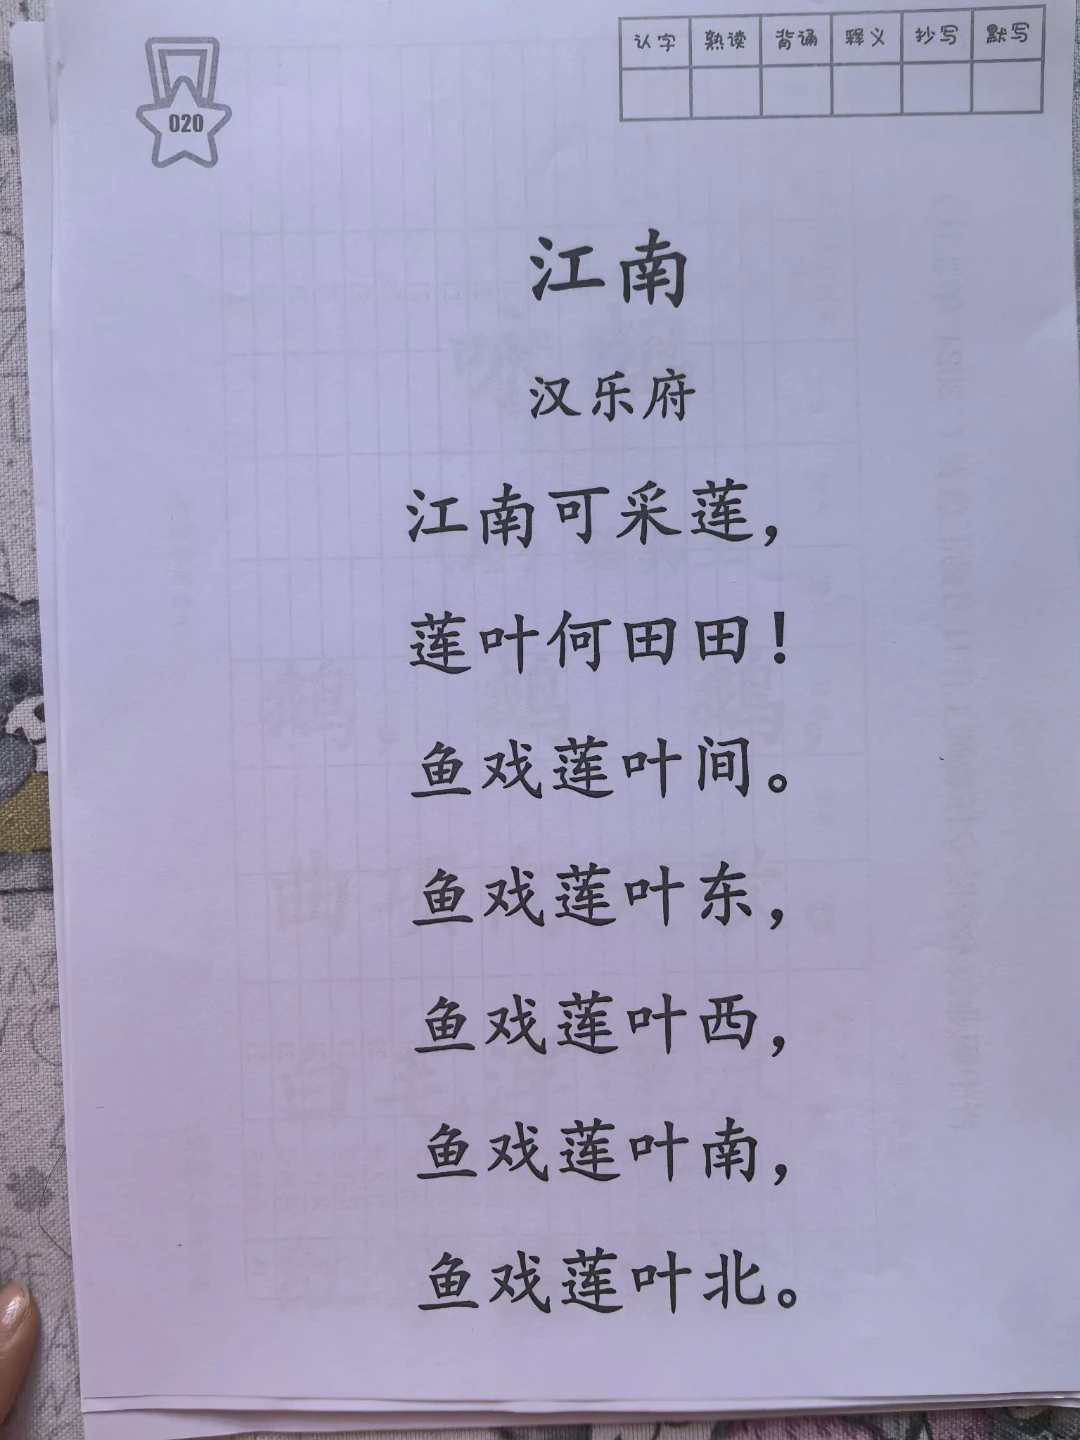 020
认字 熟读 背诵 释义 抄写 默写
江南
汉乐府
江南可采莲，
莲叶何田田！
鱼戏莲叶间。
鱼戏莲叶东，
鱼戏莲叶西，
鱼戏莲叶南，
鱼戏莲叶北。